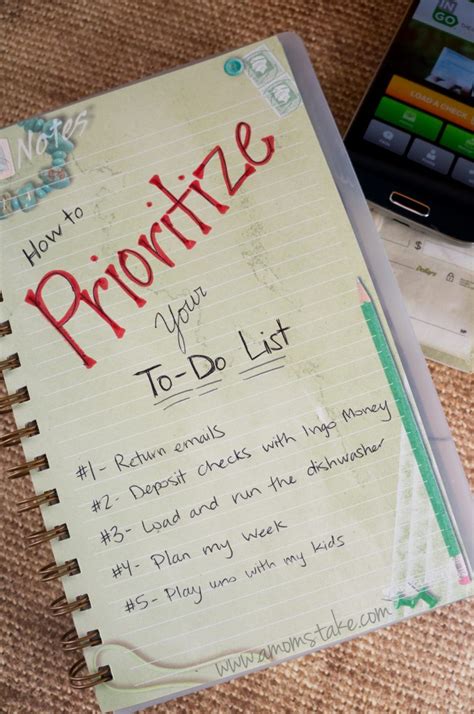 Notes
How to
Prioritize
Your
To-Do List
#1- Return emails
#2- Deposit checks with Ingo Money
#3- Load and run the dishwasher
#4- Plan my week
#5- Play uno with my kids
www.amomstake.com
IN
GO
LOAD A CHECK
$
Dollars